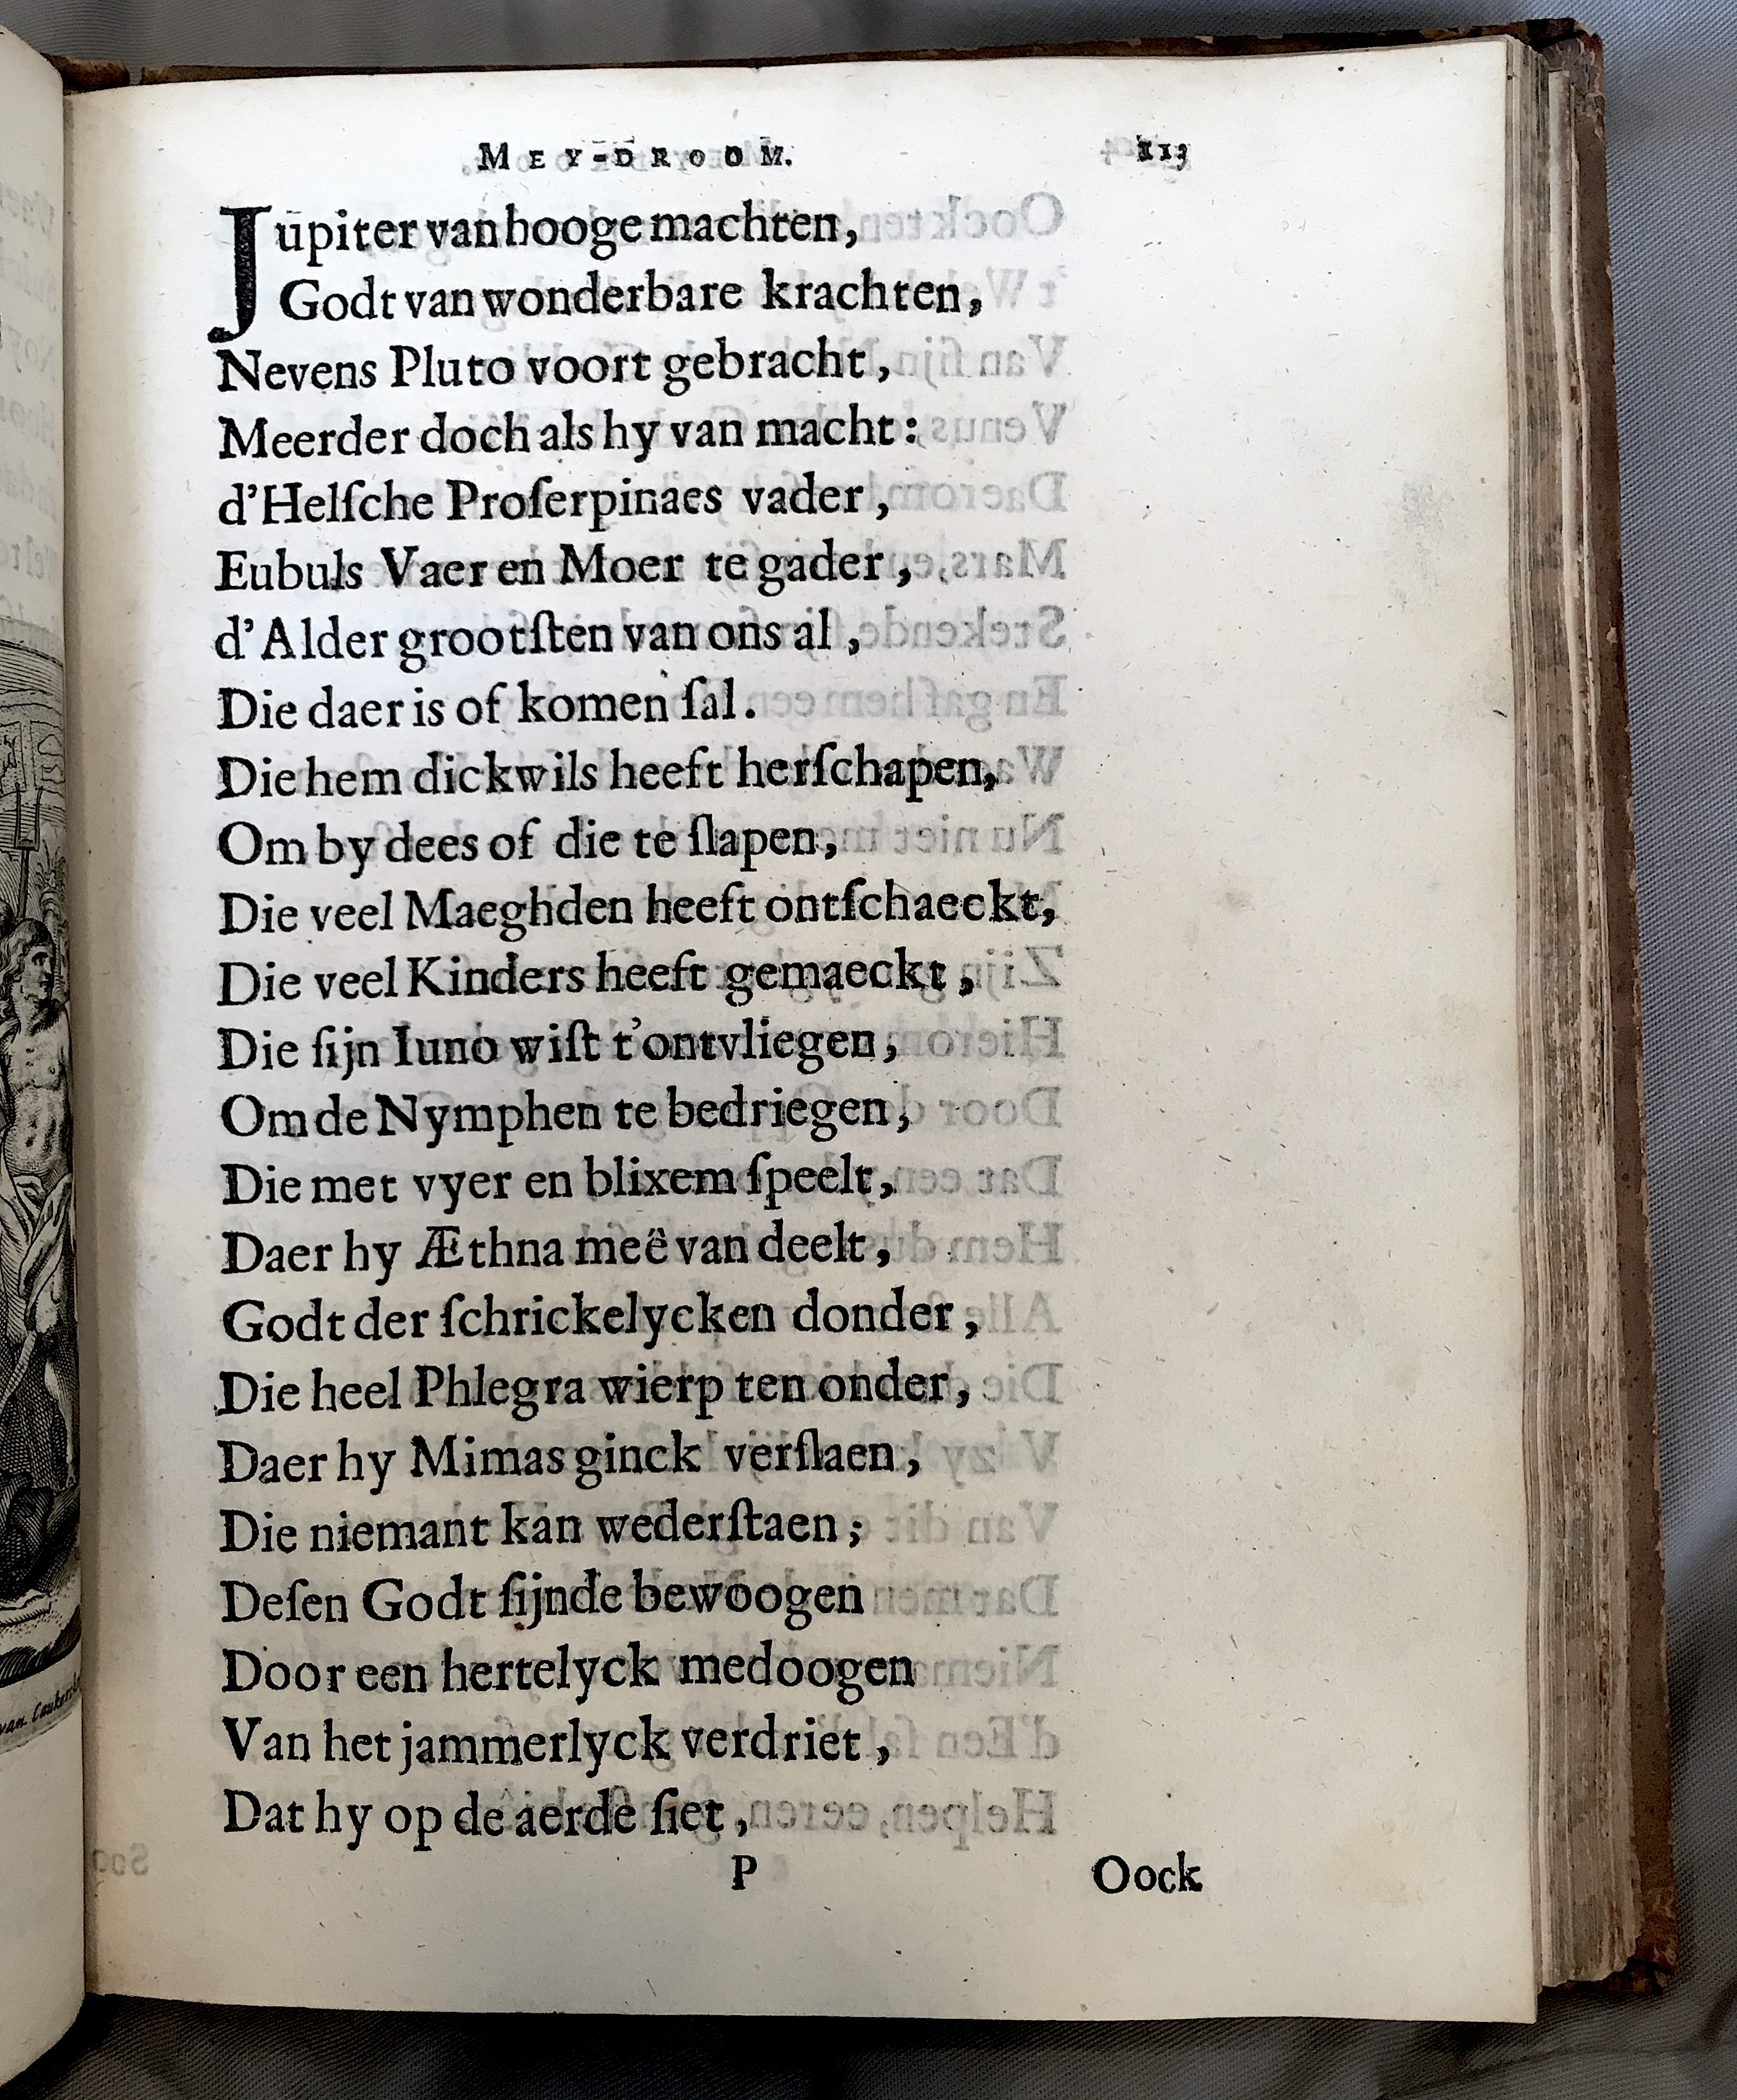 MEY-DROOM. 113
Jupiter van hooge machten,
Godt van wonderbare krachten,
Nevens Pluto voort gebracht,
Meerder doch als hy van macht:
d'Helſche Proſerpinaes vader,
Eubuls Vaer en Moer te gader,
d'Alder grootſten van ons al,
Die daer is of komen ſal.
Die hem dickwils heeft herſchapen,
Om by dees of die te ſlapen,
Die veel Maeghden heeft ontſchaeckt,
Die veel Kinders heeft gemaeckt,
Die ſijn Iuno wiſt t'ontvliegen,
Om de Nymphen te bedriegen,
Die met vyer en blixem ſpeelt,
Daer hy Æthna meë van deelt,
Godt der ſchrickelycken donder,
Die heel Phlegra wierp ten onder,
Daer hy Mimas ginck verſlaen,
Die niemant kan wederſtaen;
Deſen Godt ſijnde bewoogen
Door een hertelyck medoogen
Van het jammerlyck verdriet,
Dat hy op de aerde ſiet,
P Oock